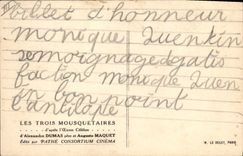 billet d'honneur
monique Quenkin
temoignagedgatis
faction monique Quen
un bon point
l'antilope
LES TROIS MOUSQUETAIRES
d'après l'Œuvre Célèbre
d'Alexandre DUMAS père et Auguste MAQUET
Édité par PATHÉ CONSORTIUM CINÉMA
M. LE DELEY, PARIS